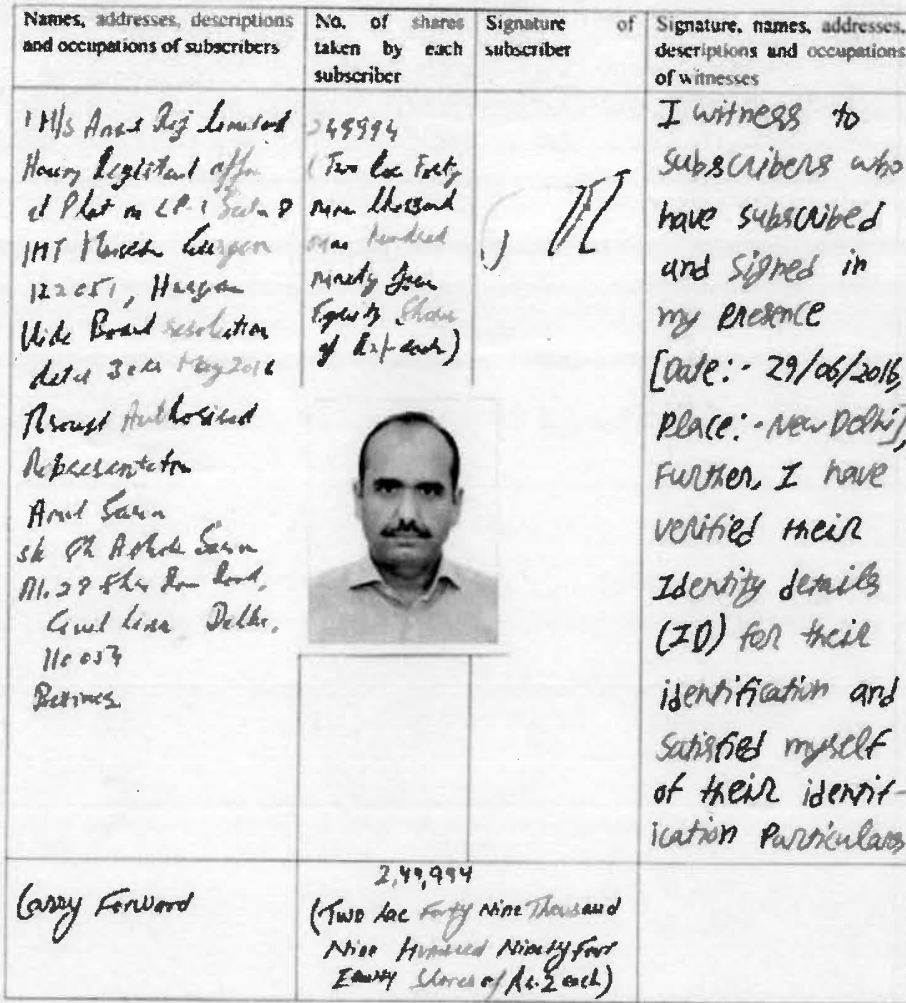 Names, addresses, descriptions
and occupations of subscribers
No. of shares
taken by each
subscriber
Signature of
subscriber
Signature, names, addresses,
descriptions and occupations
of witnesses
1 M/s Anant Raj Limited
Having Registered office
at Plot no CP-1 Sector 8
IMT Manesar Gurgaon
122051, Haryana
Vide Board resolution
dated May 2016
Through Authorised
Representative
Amit Sarin
s/o Sh Ashok Sarin
Ram Road,
Civil Lines Delhi,
110054
Business
249994
(Two Lac Forty
nine thousand
nine hundred
ninety four
Equity Shares
of Rs 2/- each)
I witness to
subscribers who
have subscribed
and signed in
my presence
[Date:- 29/06/2016,
Place:- New Delhi],
Further, I have
verified their
Identity details
(ID) for their
identification and
satisfied myself
of their identif-
ication Particulars
Carry Forward
2,49,994
(Two Lac Forty Nine Thousand
Nine Hundred Ninety Four
Equity Shares of Rs.2 each)